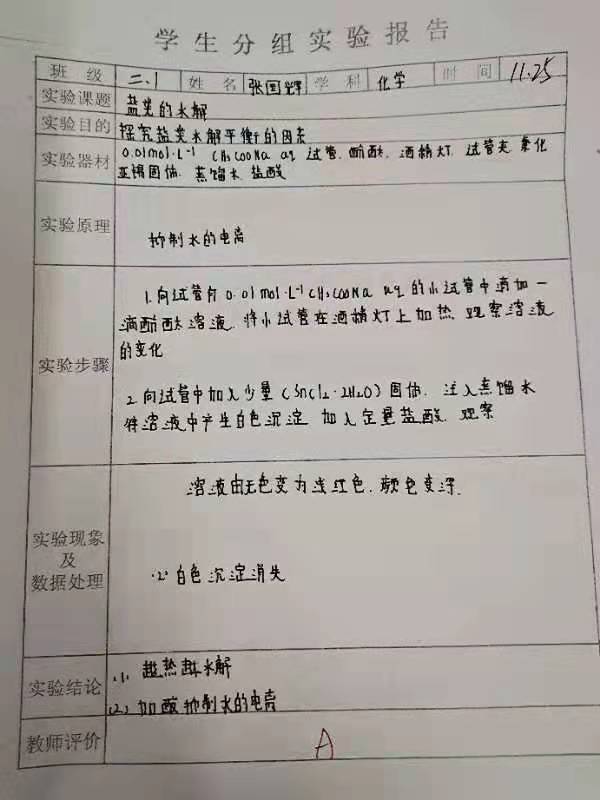 学生分组实验报告
班级 二.1 姓名 张国辉 学科 化学 时间 11.25
实验课题 盐类的水解
实验目的 探究盐类水解平衡的因素
实验器材 0.01mol·L⁻¹ CH₃COONa aq 试管、酚酞、酒精灯、试管夹、氯化
亚锡固体、蒸馏水、盐酸
实验原理 抑制水的电离
实验步骤
1.向试管有0.01mol·L⁻¹CH₃COONa aq 的小试管中滴加一
滴酚酞溶液,将小试管在酒精灯上加热,观察溶液
的变化
2.向试管中加入少量(SnCl₂·2H₂O)固体,注入蒸馏水
使溶液中产生白色沉淀,加入定量盐酸,观察
实验现象
及
数据处理
溶液由无色变为浅红色,颜色变深.
(2) 白色沉淀消失
实验结论 (1) 越热越水解
(2) 加酸抑制水的电离
教师评价 A